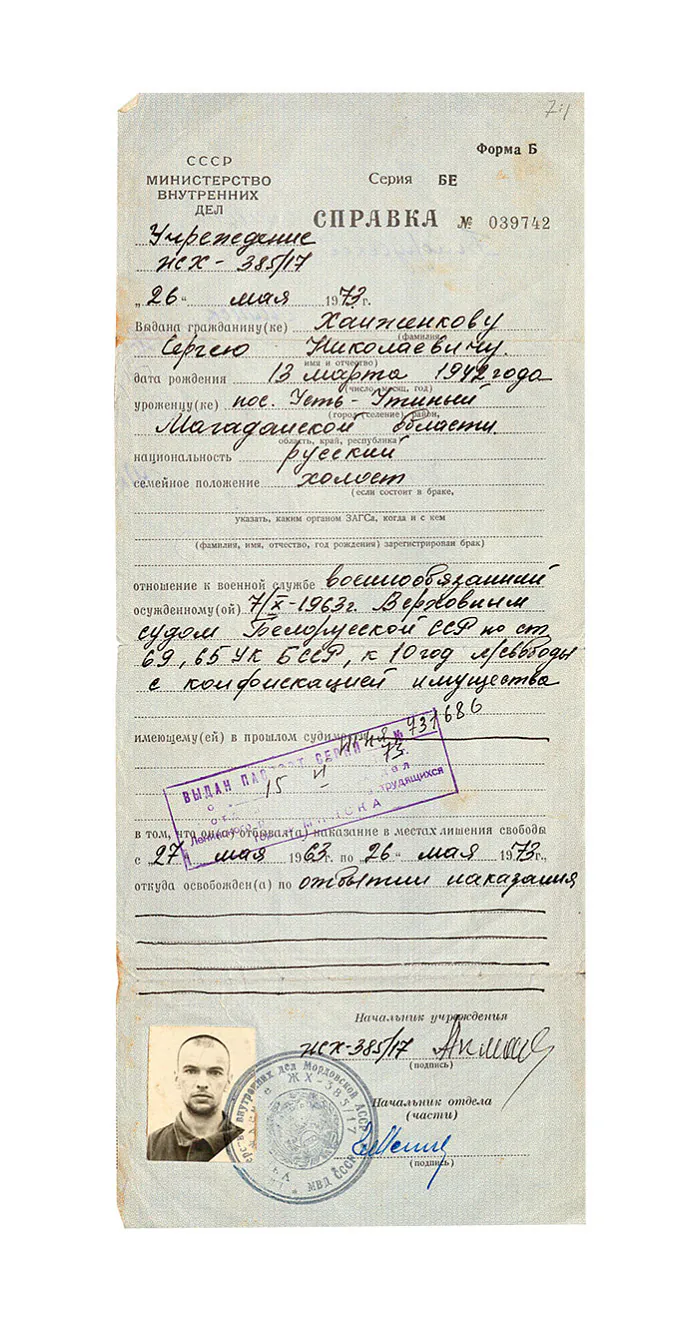 7:1
Форма Б
СССР
МИНИСТЕРСТВО
ВНУТРЕННИХ
ДЕЛ
Серия БЕ
СПРАВКА № 039742
Учреждение
ЖХ - 385/17
„26" мая 1973 г.
Выдана гражданину(ке) Ханженкову
(фамилия
Сергею Николаевичу.
имя и отчество)
дата рождения 13 марта 1942 года
(число, месяц, год)
уроженцу(ке) пос. Усть-Утиный
(город (селение), район,
Магаданской области.
область, край, республика)
национальность русский
семейное положение холост
(если состоит в браке,
указать, каким органом ЗАГСа, когда и с кем
(фамилия, имя, отчество, год рождения) зарегистрирован брак)
отношение к военной службе военнообязанний
осужденному(ой) 7/X-1963г. Верховным
судом Белорусской ССР по ст
69, 65 УК БССР, к 10 год л/свободы
с конфискацией имущества
имеющему(ей) в прошлом судимости
ВЫДАН ПАСПОРТ СЕРИЯ № 731686
15 73
Ленинского трудящихся
МИНСКА
в том, что он(а) отбывал(а) наказание в местах лишения свободы
с „27" мая 1963 г. по „26" мая 1973 г.,
откуда освобожден(а) по отбытии наказания
Начальник учреждения
ЖХ-385/17
(подпись)
Начальник отдела
(части)
(подпись)
внутренних дел Мордовской АССР
ЖХ-385/17
МВД СССР